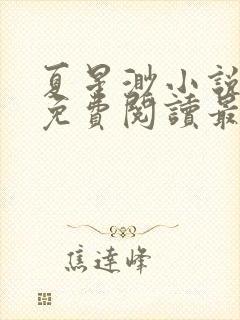 夏星渺小說
免費閱讀最
焦達峰